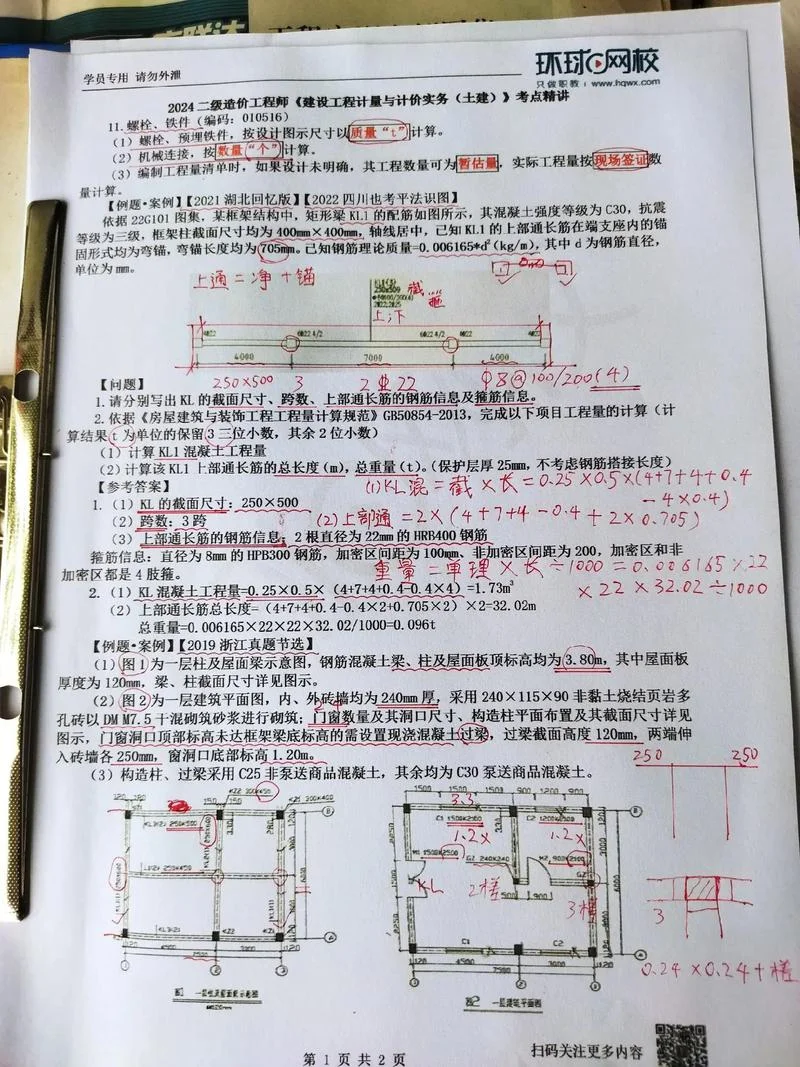 学员专用 请勿外泄
环球网校
只做职教 | www.hqwx.com
2024 二级造价工程师《建设工程计量与计价实务（土建）》考点精讲
11. 螺栓、铁件（编码：010516）
（1）螺栓、预埋铁件，按设计图示尺寸以质量“t”计算。
（2）机械连接，按数量“个”计算。
（3）编制工程量清单时，如果设计未明确，其工程数量可为暂估量，实际工程量按现场签证数
量计算。
【例题·案例】【2021 湖北回忆版】【2022 四川也考平法识图】
依据 22G101 图集，某框架结构中，矩形梁 KL1 的配筋如图所示，其混凝土强度等级为 C30，抗震
等级为三级，框架柱截面尺寸均为 400mm×400mm，轴线居中，已知 KL1 的上部通长筋在端支座内的锚
固形式均为弯锚，弯锚长度均为 705mm。已知钢筋理论质量=0.006165*d²(kg/m)，其中 d 为钢筋直径，
单位为 mm。
上通＝净＋锚
截
箍
上下
4Φ22 6Φ22 4/2 6Φ22 4/2 4Φ22
4000 7000 4000
【问题】 250×500 3 2Φ22 Φ8@100/200(4)
1. 请分别写出 KL 的截面尺寸、跨数、上部通长筋的钢筋信息及箍筋信息。
2. 依据《房屋建筑与装饰工程工程量计算规范》GB50854-2013，完成以下项目工程量的计算（计
算结果 t 为单位的保留 3 三位小数，其余 2 位小数）
（1）计算 KL1 混凝土工程量
（2）计算该 KL1 上部通长筋的总长度（m），总重量（t）。（保护层厚 25mm，不考虑钢筋搭接长度）
【参考答案】
(1) KL混＝截×长＝0.25×0.5×(4+7+4+0.4
－4×0.4)
1. （1）KL 的截面尺寸：250×500
（2）跨数：3 跨
(2)上部通＝2×(4+7+4－0.4＋2×0.705)
（3）上部通长筋的钢筋信息：2 根直径为 22mm 的 HRB400 钢筋
箍筋信息：直径为 8mm 的 HPB300 钢筋，加密区间距为 100mm、非加密区间距为 200，加密区和非
加密区都是 4 肢箍。
重量＝单理×长÷1000＝0.006165×22
×22×32.02÷1000
2. （1）KL 混凝土工程量=0.25×0.5×（4+7+4+0.4-0.4×4）=1.73m³
（2）上部通长筋总长度=（4+7+4+0.4-0.4×2+0.705×2）×2=32.02m
总重量=0.006165×22×22×32.02/1000=0.096t
【例题·案例】【2019 浙江真题节选】
（1）图 1 为一层柱及屋面梁示意图，钢筋混凝土梁、柱及屋面板顶标高均为 3.80m，其中屋面板
厚度为 120mm，梁、柱截面尺寸详见图示。
（2）图 2 为一层建筑平面图，内、外砖墙均为 240mm 厚，采用 240×115×90 非黏土烧结页岩多
孔砖以 DM M7.5 干混砌筑砂浆进行砌筑；门窗数量及其洞口尺寸、构造柱平面布置及其截面尺寸详见
图示，门窗洞口顶部标高未达框架梁底标高的需设置现浇混凝土过梁，过梁截面高度 120mm，两端伸
入砖墙各 250mm，窗洞口底部标高 1.20m。
（3）构造柱、过梁采用 C25 非泵送商品混凝土，其余均为 C30 泵送商品混凝土。
250 250
3.3
C1 1500×2100 C2 1200×2100
1.2× 1.2×
M1 1500×2500 GZ 240×240 M2 900×2100
KL 2槎 3槎
3
0.24×0.24＋槎
C1 C2
4500 3000
7500
图1 一层柱及屋面梁示意图
图2 一层建筑平面图
扫码关注更多内容
第 1 页 共 2 页